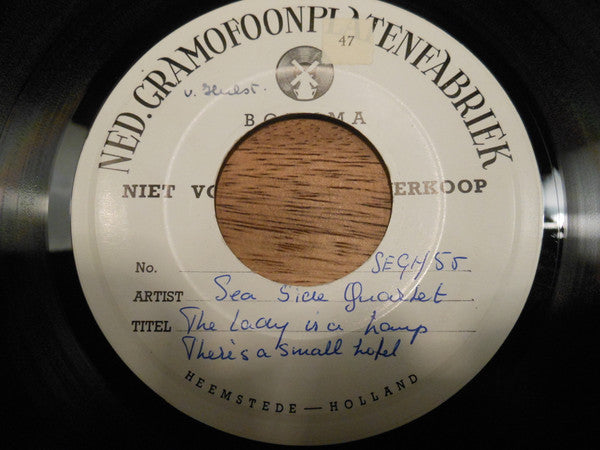 NED. GRAMOFOONPL TENFABRIEK
47
v. Hulst.
BO MA
NIET VO ERKOOP
No. SEGH 55
ARTIST Sea Side Quartet
TITEL The Lady is a tramp
There's a small hotel
HEEMSTEDE — HOLLAND